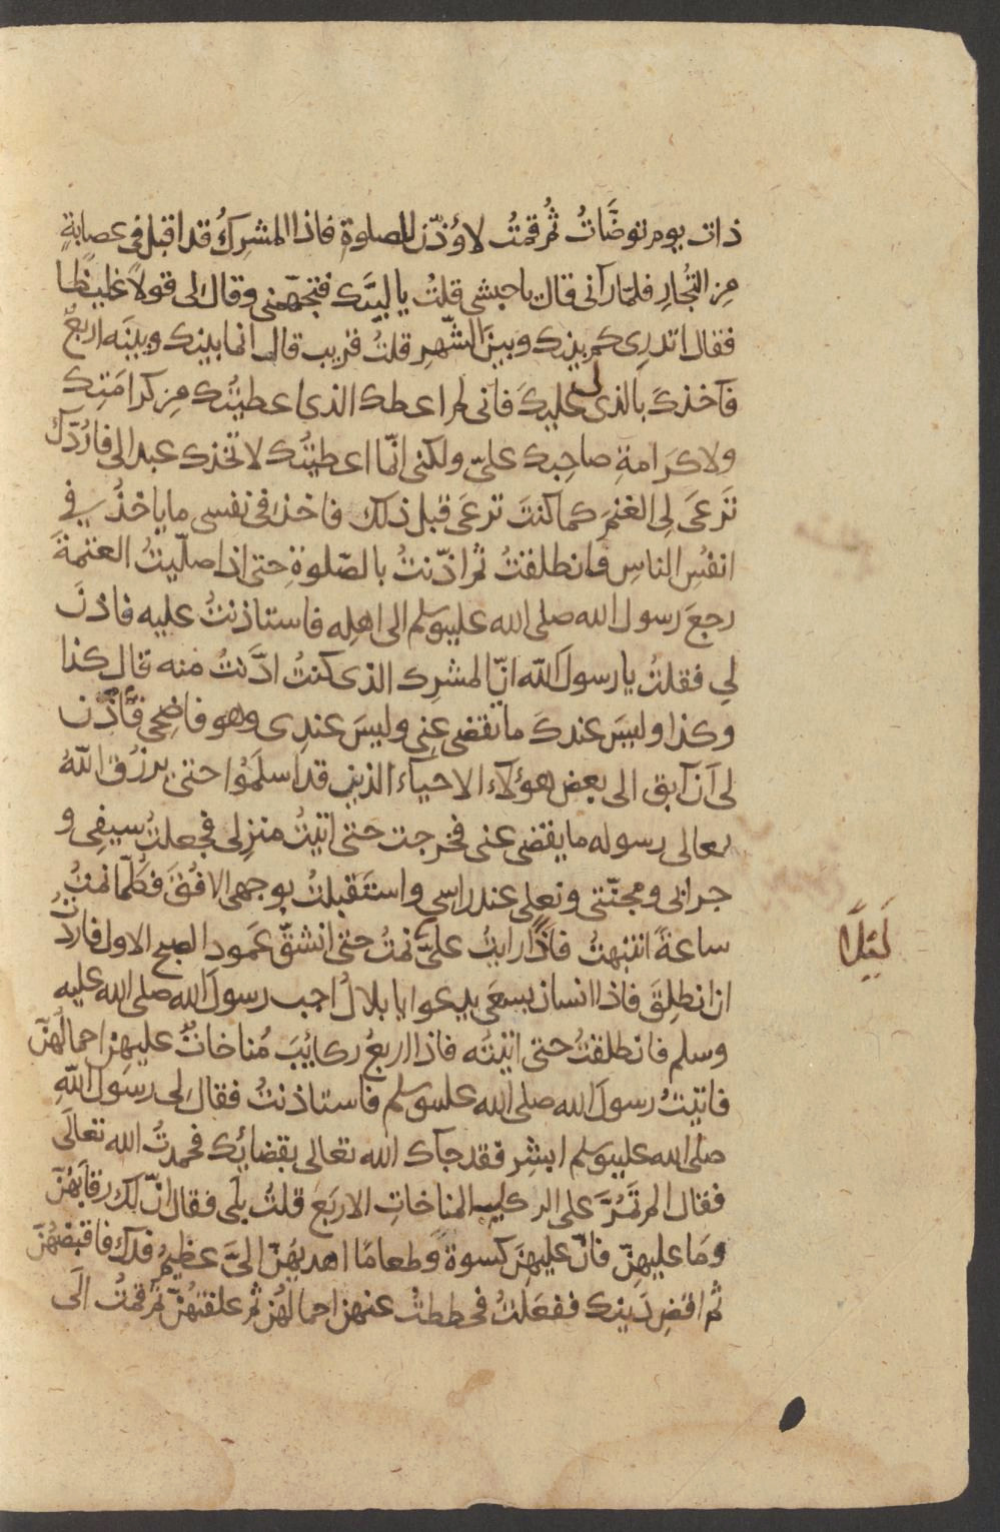 ذات يوم توضَّاتُ ثُم قمتُ لاوُذّن للصلوة فاذا المشرِكُ قد اقبل في عصابةٍ
مِن التُجارِ فلمّا رآنى قال ياحبشى قلتُ يا لبَّيك فتجهّمنى وقال لى قولًا غليظًا
فقال اتدرِى كم بينك وبينَ الشّهرِ قلتُ قريب قال انما بينك وبينَه اربعٌ
فآخذكَ بالذى لى عليكَ فانى لم اعطك الذى اعطيتُك مِن كرامَتِك
ولا كرَامةِ صاحِبِك علىّ ولكنى انّما اعطيتُك لاتخذك عبدا لى فارُدّك
تَرعَى لِى الغنمَ كما كنتَ ترعَى قبل ذلك فاخذ فى نفسى ما ياخذُ في
انفُسِ الناسِ فانطلقتُ ثم اذّنتُ بالصّلوةِ حتى اذا صلّيتُ العتمةَ
رجعَ رسول الله صلى الله عليه وسلم الى اهلِه فاستاذنتُ عليه فاذنَ
لي فقلتُ يا رسولَ الله انّ المشرِك الذى كنتُ ادَّنتُ منه قال كذا
وكذا وليسَ عندكَ ما تقضى عنِى وليسَ عندِى وهو فاضِحِى فَأذَن
لى اَن آبق الى بعض هؤلآء الاحيآء الذين قد اسلَمُوا حتى يرزُق اللهُ
تعالى رسوله ما يقضى عنى فخرجت حتى اتيتُ منزِلى فجعلتُ سيفِى و
جرابى ومجنّتى ونعلى عند راسي واستقبلتُ بوجهى الافُقَ فكُلّما نمتُ
ساعةً انتبهتُ فاذا رايتُ علىّ نمتُ حتى انشقّ عَمود الصبح الاول فاردتُ
ليْلًا
ان انطلِقَ فاذا انسان يسعَى يدعوا يا بلالُ اجب رسولَ الله صلى الله عليه
وسلم فانطلقتُ حتى اتيتُه فاذا اربعُ ركايُبَ مُناخاتٌ عليهن احمالُهنّ
فاتيتُ رسولَ الله صلى الله عليه وسلم فاستاذنتُ فقال لى رسول اللهِ
صلى الله عليه وسلم ابشِر فقد جآك الله تعالى بقضائِك فحمدتُ الله تعالَى
فقال الم تمُرَّ على الركايب المناخاتِ الاربَع قلتُ بلَى فقال انّ لك رقابَهُنّ
ومَا عليهِنّ فانّ عليهنَ كسوةً وطعامًا اهديهُنّ الىَّ عظيمُ فدك فاقبضهُنّ
ثم اقضِ دَينك ففعَلتُ فحططتُ عنهن احمالهُنّ ثم علقتهُنّ ثم قمتُ الَى